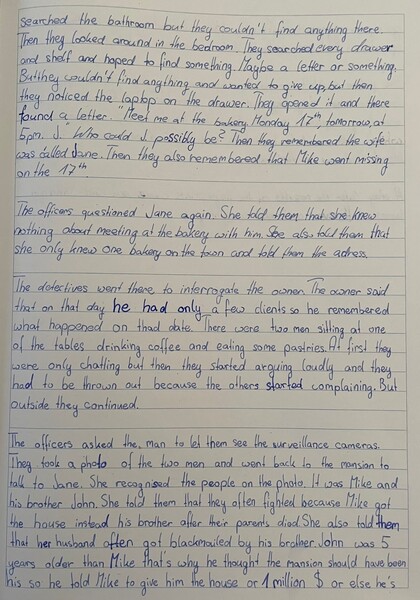 searched the bathroom but they couldn't find anything there.
Then they looked around in the bedroom. They searched every drawer
and shelf and hoped to find something. Maybe a letter or something.
But they couldn't find angthing and wanted to give up, but then
they noticed the laptop on the drawer. They opened it and there
found a letter. "Meet me at the bakery, Monday 17th, tomorrow, at
5pm. J." Who could J. possibly be? Then they remembered the wife
was called Jane. Then they also remembered that Mike went missing
on the 17th...
The officers questioned Jane again. She told them that she knew
nothing about meeting at the bakery with him. She also told them that
she only knew one bakery on the town and told them the adress.
The detectives went there to interrogate the owner. The owner said
that on that day he had only a few clients so he remembered
what happened on thad date. There were two men sitting at one
of the tables, drinking coffee and eating some pastries. At first they
were only chatling but then they started arguing loudly and they
had to be thrown out because the others started complaining. But
outside they continued.
The officers asked the man to let them see the surveillance cameras.
They took a photo of the two men and went back to the mansion to
talk to Jane. She recognised the people on the photo. It was Mike and
his brother John. She told them that they often fighted because Mike got
the house instead his brother after their parents died. She also told them
that her husband often got blackmailed by his brother. John was 5
years older than Mike that's why he thought the mansion should have been
his so he told Mike to give him the house or 1 million $ or else he's